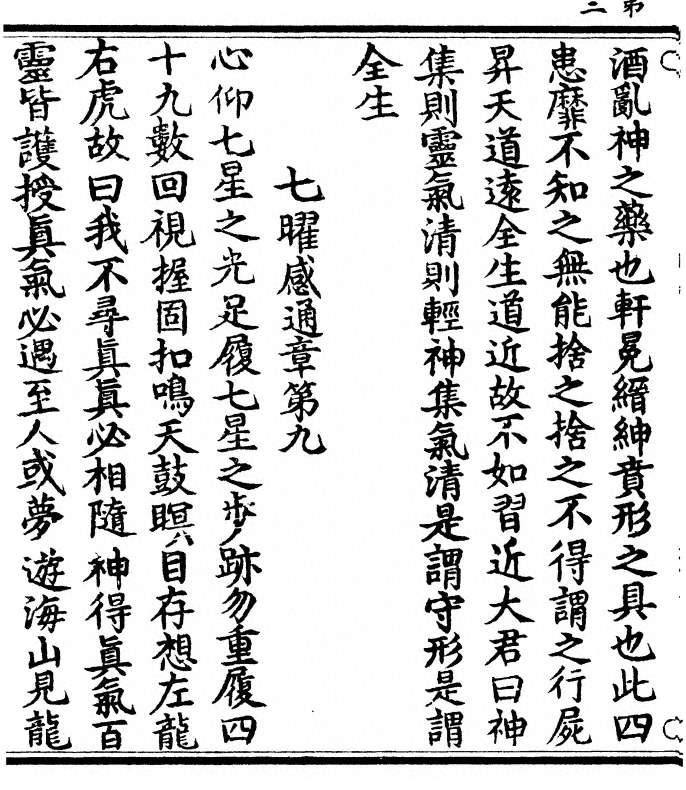 酒亂神之藥也軒冕縉紳賁形之具也此四
患靡不知之無能捨之捨之不得謂之行屍
昇天道遠全生道近故不如習近大君曰神
集則靈氣清則輕神集氣清是謂守形是謂
全生
七曜感通章第九
心仰七星之光足履七星之步跡勿重履四
十九數回視握固扣鳴天鼓瞑目存想左龍
右虎故曰我不尋眞眞必相隨神得眞氣百
靈皆護授眞氣必遇至人或夢遊海山見龍